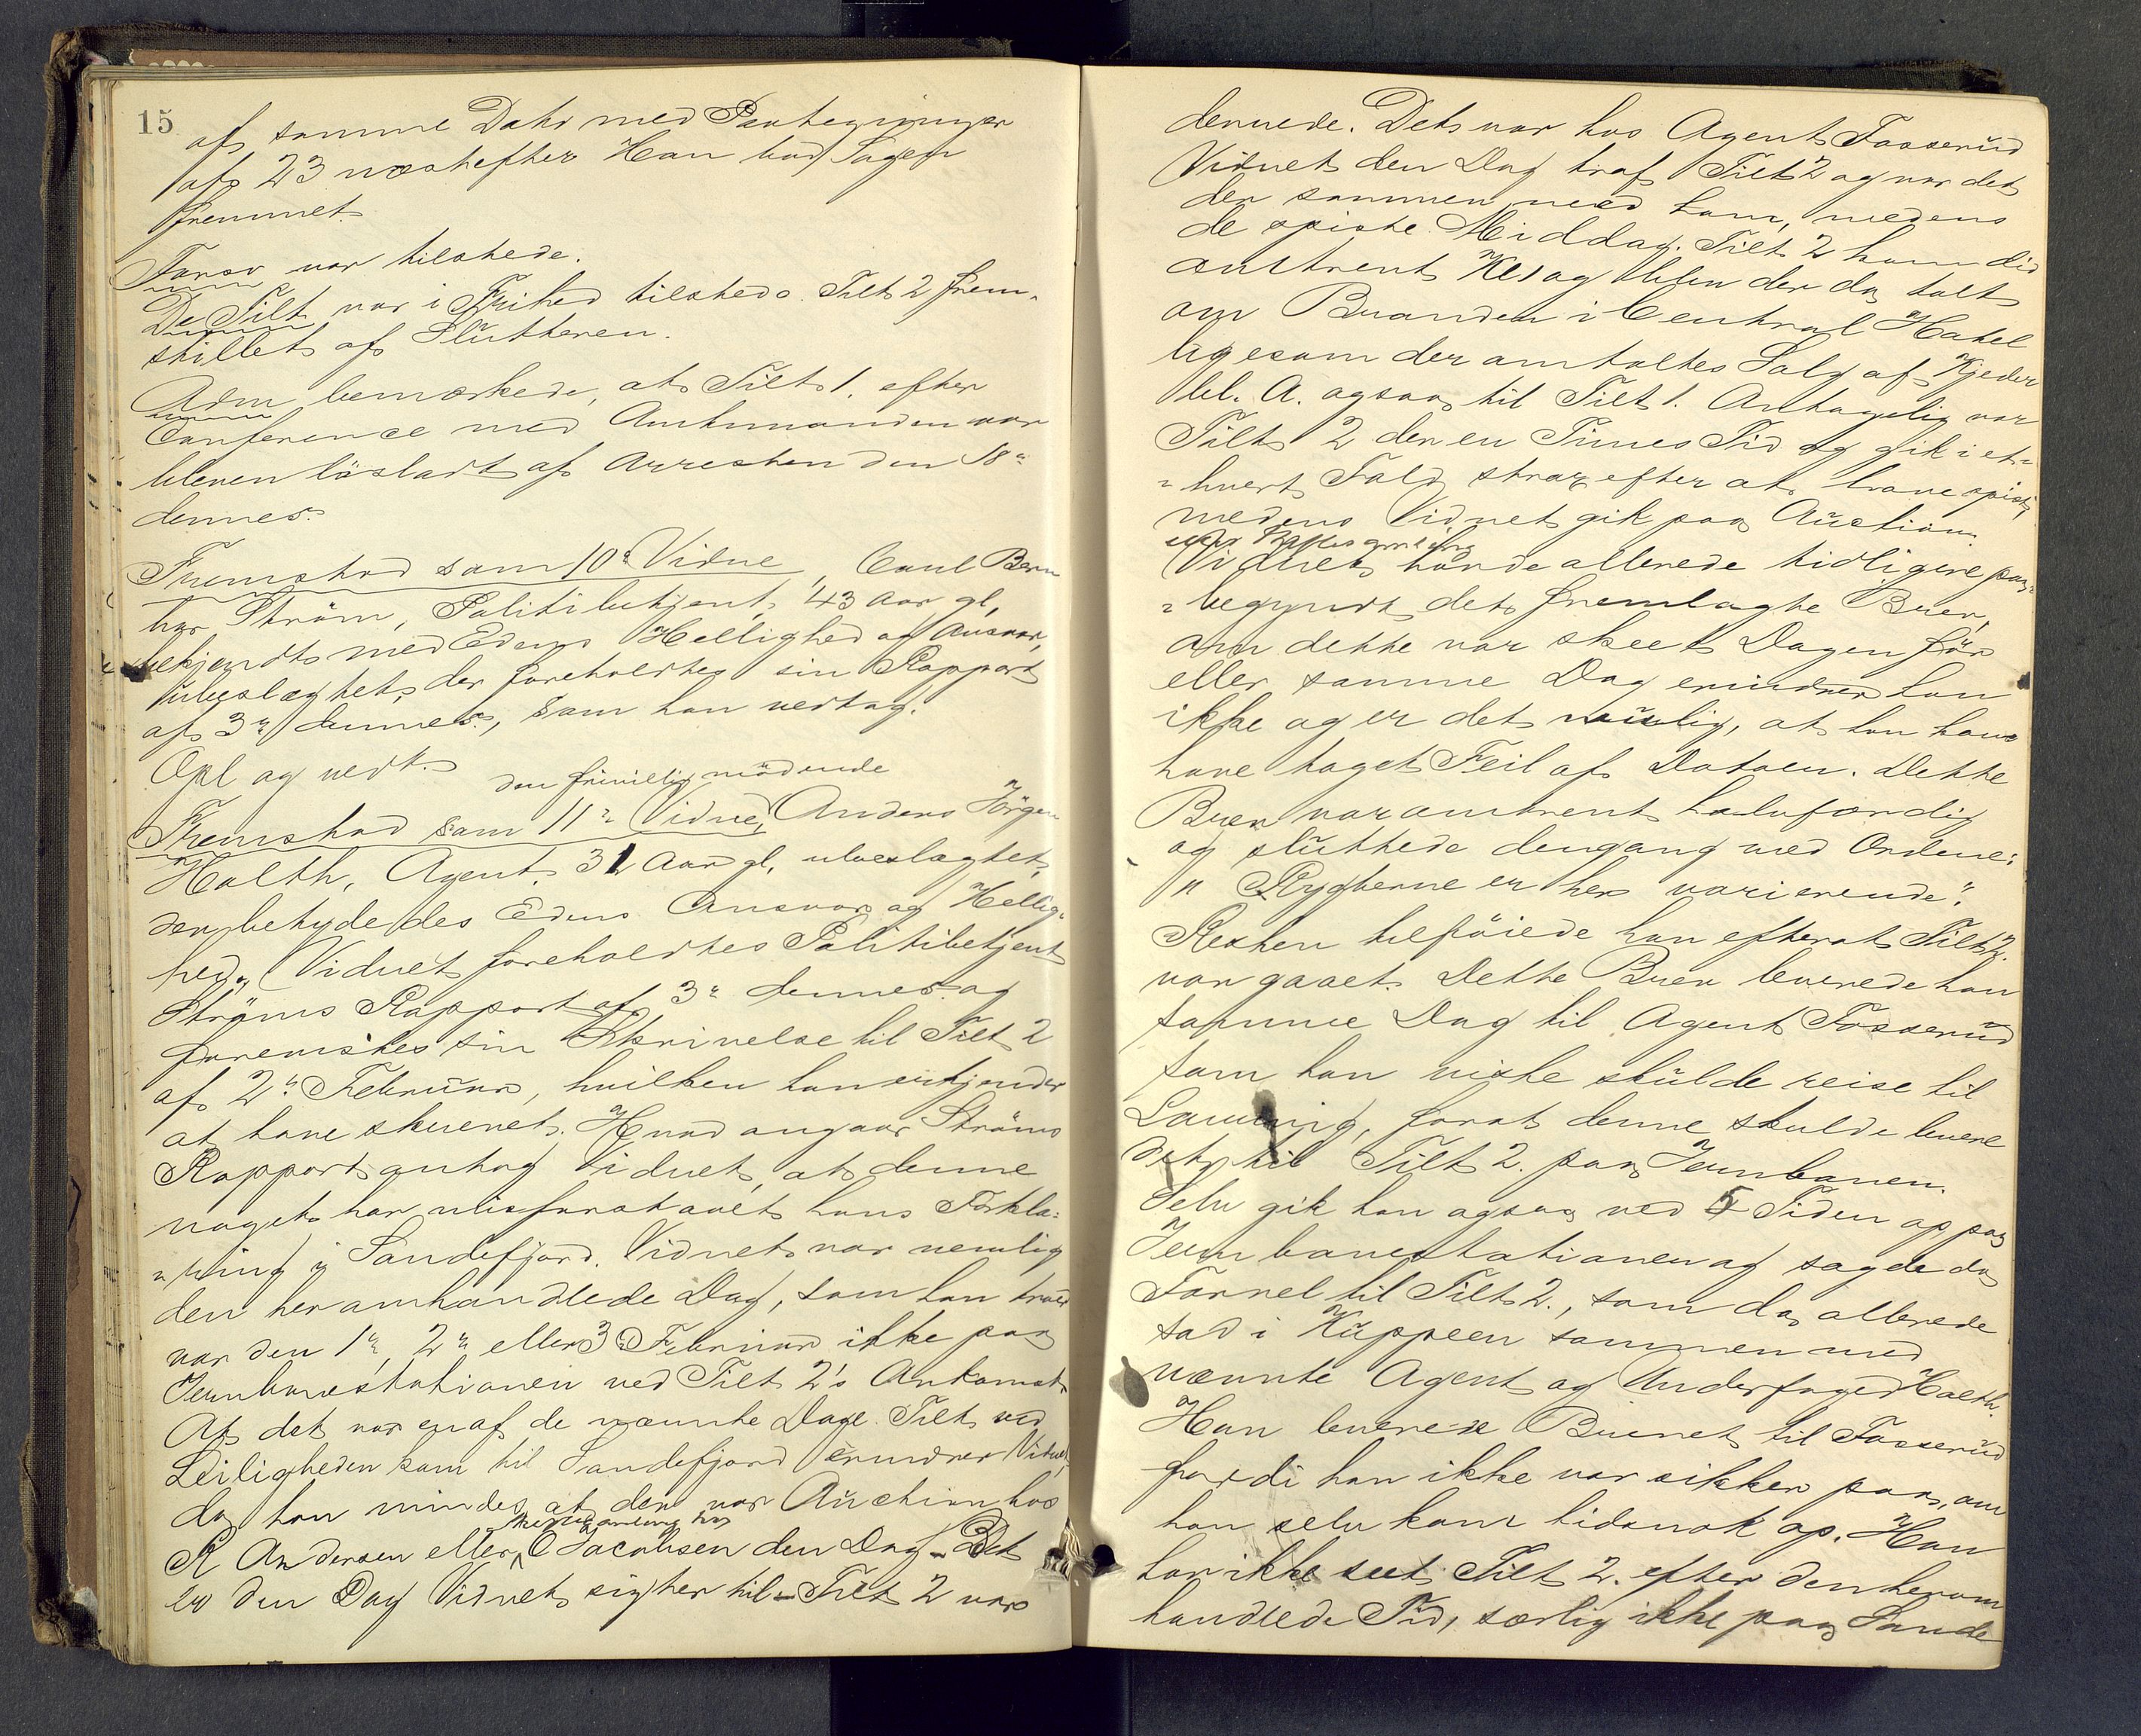 15
af samme Dato med Paategninger
af 23 næstefter Han bad Sagen
fremmet.
Forsv var tilstede.
De Tilt var i Frihed tilstede. Tilt 2 frem-
stillet af Slutteren.
Adm bemærkede, at Tilt 1. efter
Conference med Amtmanden var
bleven løsladt af Arresten den 18de
dennes.
Fremstod som 10de Vidne, Carl Bern
har Strøm, Politibetjent, 43 Aar gl,
bekjendt med Edens Hellighed og Ansvar,
ubeslægtet, der foreholdtes sin Rapport
af 3de dennes, som han vedtog.
Opl og vedt.
den frivillig mødende
Fremstod som 11te Vidne, Anders Jørgen
Holth, Agent, 31 Aar gl, ubeslægtet,
der betydedes Edens Ansvar og Hellig-
hed. Vidnet foreholdtes Politibetjent
Strøms Rapport af 3de dennes og
forevistes sin Skrivelse til Tilt 2
af 2de Februar, hvilken han erkjender
at have skrevet. Hvad angaar Strøms
Rapport antog Vidnet, at denne
noget har misforstaaet hans Forkla-
ring i Sandefjord. Vidnet var nemlig
den her omhandlede Dag, som han troer
var den 1ste, 2den eller 3die Februar ikke paa
Jernbanestationen ved Tilt 2's Ankomst.
At det var en af de nævnte Dage Tilt ved
Leiligheden kom til Sandefjord erindrer Vidnet,
da han mindes, at der var Auction hos
hos
R Andersen eller O Jacobsen den Dag - Det
er den Dag Vidnet sigter til - Tilt 2 var
dernede. Det var hos Agent Fosserud
Vidnet den Dag traf Tilt 2 og var det
der sammen med ham, medens
de spiste Middag. Tilt 2 kom did
omtrent Kl 1 og blev der da talt
om Branden i Central Hotel
ligesom der omtaltes Salg af Kjeder
bl. A. ogsaa til Tilt 1. Antagelig var
Tilt 2 der en Times Tid og gik i et-
hvert Fald strax efter at have spist,
medens Vidnet gik paa Auction
Vidnet havde allerede tidligere paa-
begyndt det fremlagte Brev,
om dette var skeet Dagen før
eller samme Dag erindrer han
ikke og er det muulig, at han kan
have taget Feil af Datoen. Dette
Brev var omtrent halvfærdig
og sluttede dengang ved Ordene:
"Rygterne er her varierende".
Resten tilføiede han efterat Tilt 2.
var gaaet. Dette Brev leverede han
samme Dag til Agent Fosserud
som han vidste skulde reise til
Laurvig, forat denne skulde levere
det til Tilt 2. paa Jernbanen.
Selv gik han ogsaa ved 5 Tiden op paa
Jernbanestationen og sagde da
Farvel til Tilt 2., som da allerede
sad i Kuppeen sammen med
nævnte Agent og Underfoged Holth.
Han leverede Brevet til Fosserud
fordi han ikke var sikker paa, om
han selv kom tidsnok op. Han
har ikke seet Tilt 2. efter den herom
handlede Tid, særlig ikke paa Sande